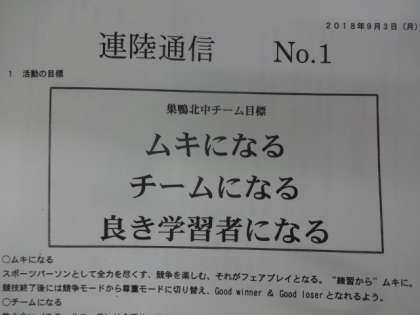 2018年9月3日(月)
連陸通信 No.1
1 活動の目標
巣鴨北中チーム目標
ムキになる
チームになる
良き学習者になる
○ムキになる
スポーツパーソンとして全力を尽くす、競争を楽しむ、それがフェアプレイとなる。“練習から”ムキに。
競技終了後には競争モードから尊重モードに切り替え、Good winner & Good loserとなれるよう。
○チームになる